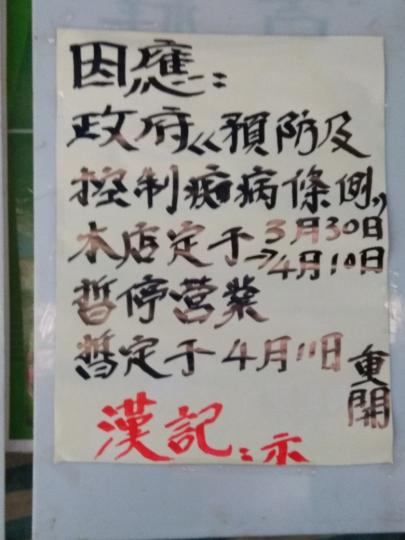 因應：
政府《預防及
控制疾病條例》
本店定于3月30日
→4月10日
暫停營業
暫定于4月11日重開
漢記：示